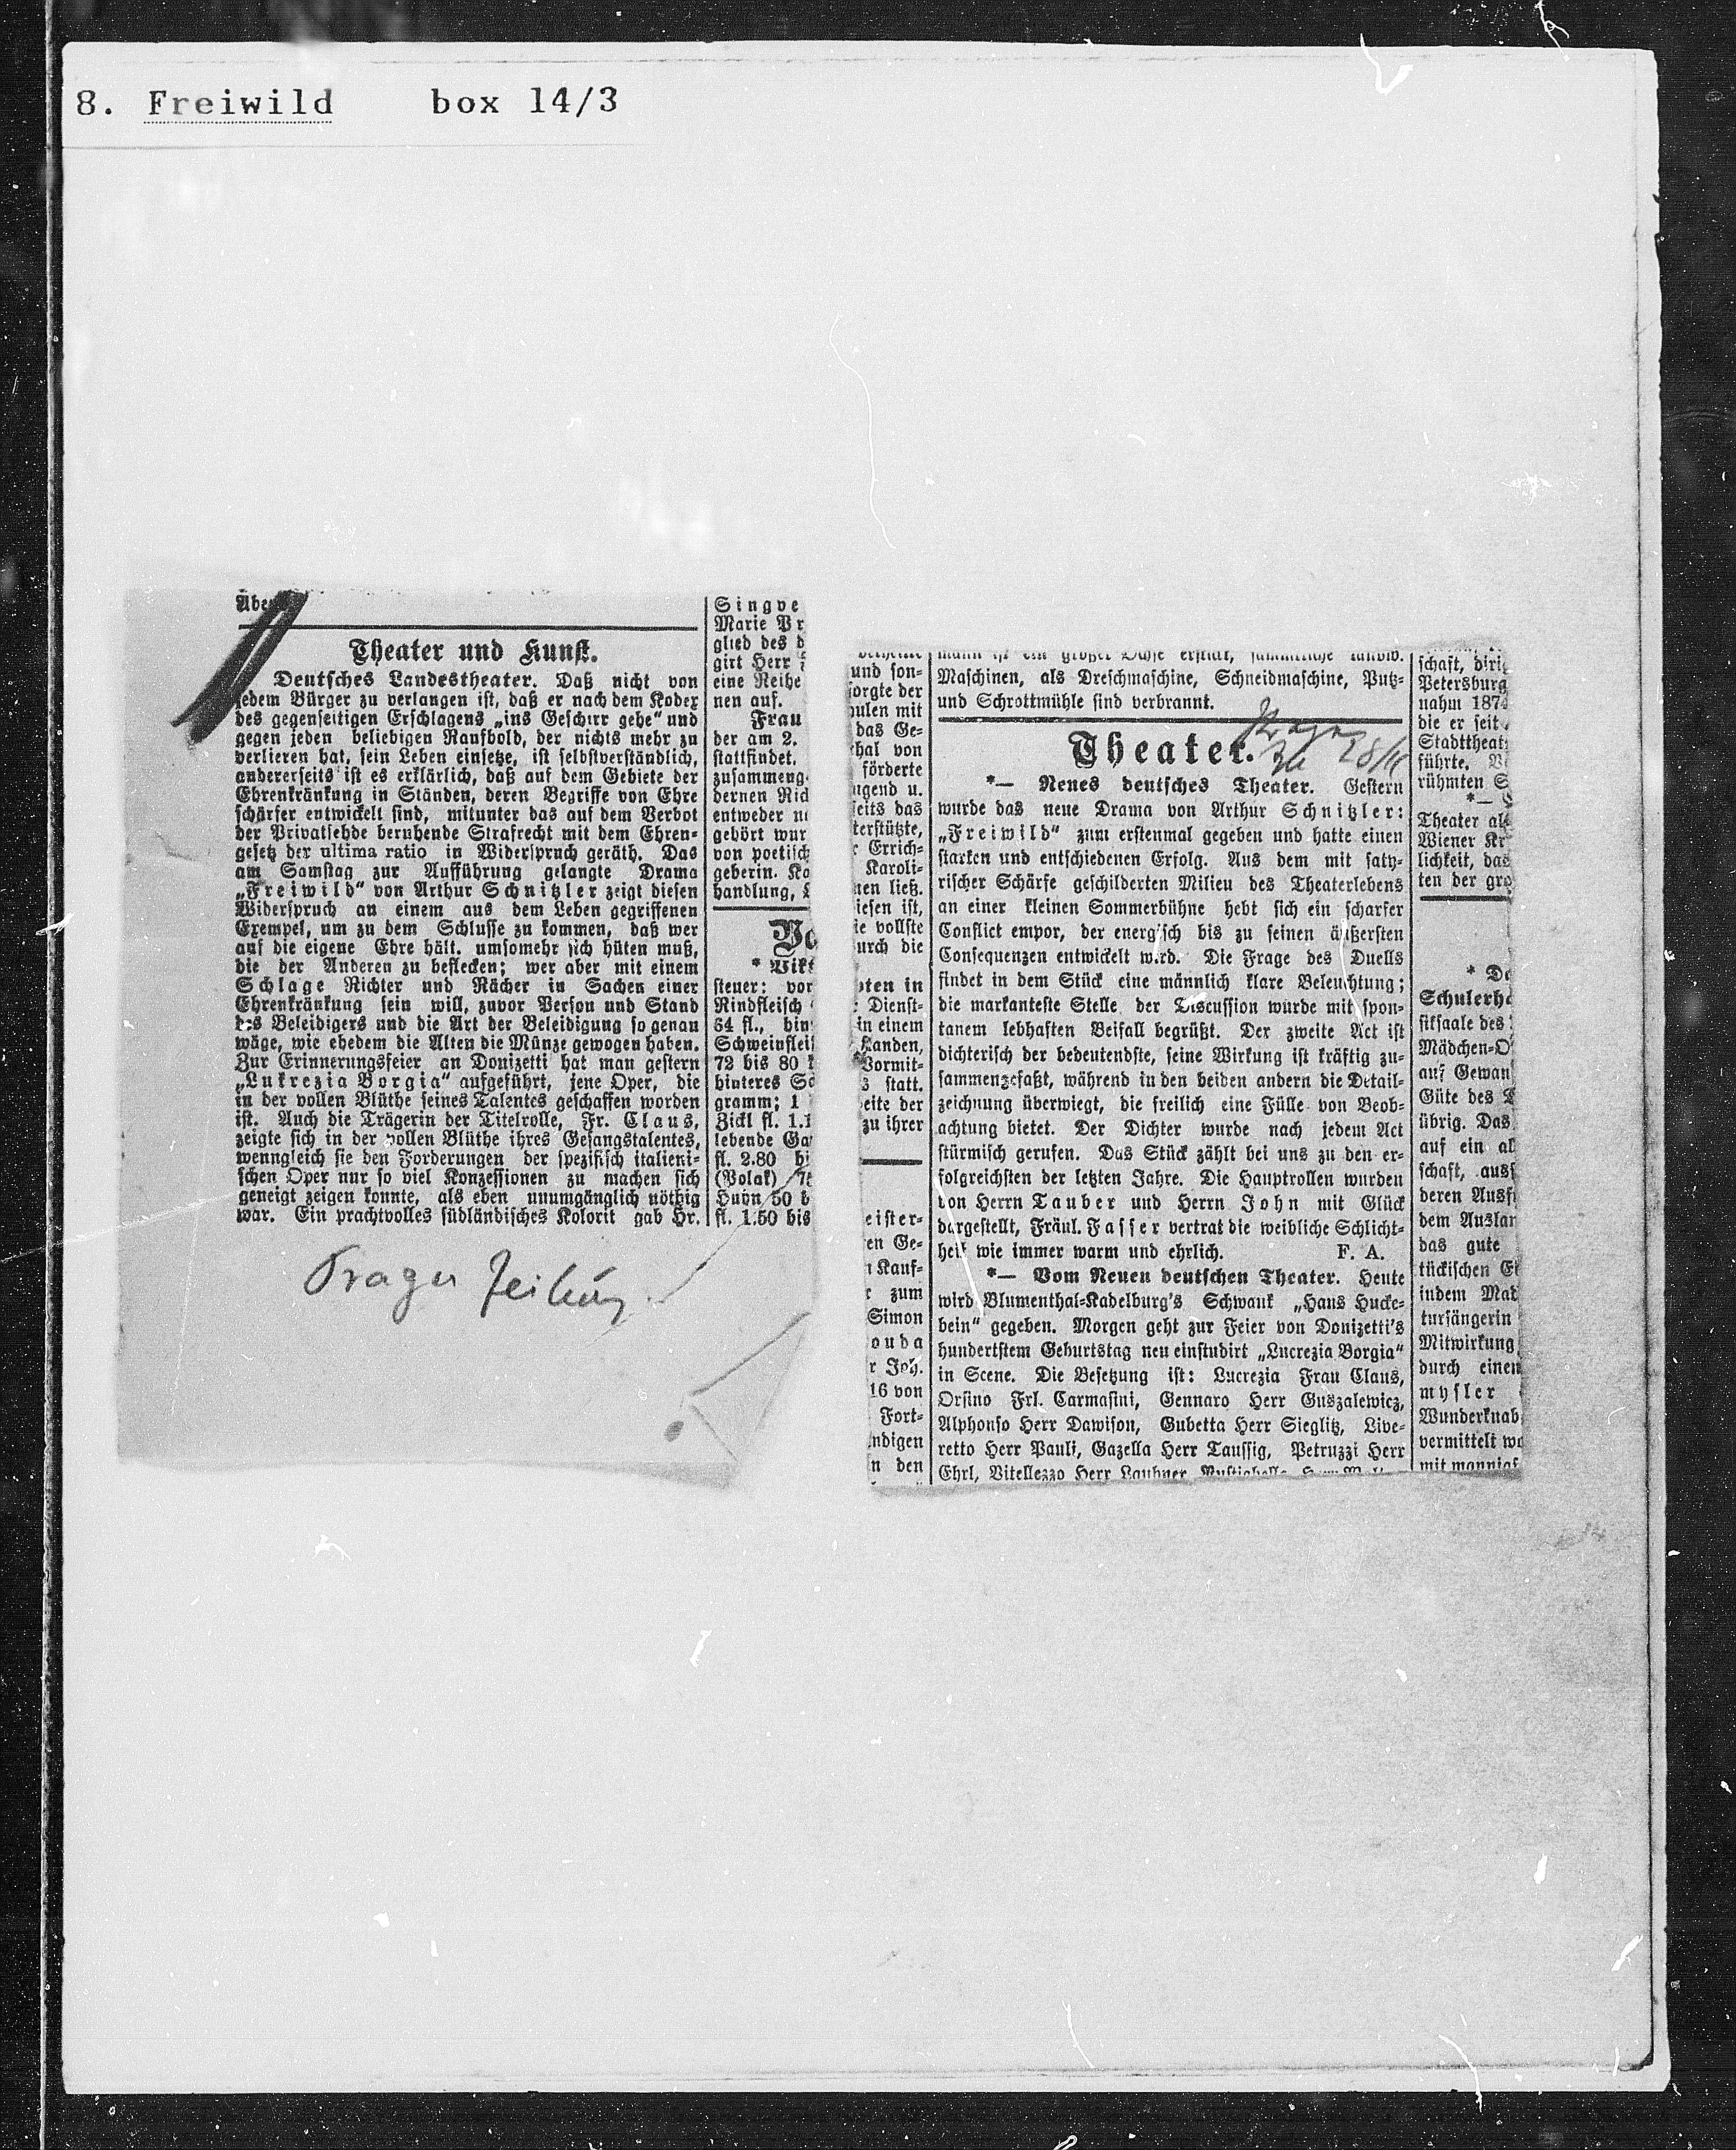 8. Freiwild box 14/3
Theater und Kunst.
Deutsches Landestheater. Daß nicht von
jedem Bürger zu verlangen ist, daß er nach dem Kodex
des gegenseitigen Erschlagens „ins Geschirr gehe“ und
gegen jeden beliebigen Raufbold, der nichts mehr zu
verlieren hat, sein Leben einsetze, ist selbstverständlich,
andererseits ist es erklärlich, daß auf dem Gebiete der
Ehrenkränkung in Ständen, deren Begriffe von Ehre
schärfer entwickelt sind, mitunter das auf dem Verbot
der Privatfehde beruhende Strafrecht mit dem Ehren-
gesetz der ultima ratio in Widerspruch geräth. Das
am Samstag zur Aufführung gelangte Drama
„Freiwild“ von Arthur Schnitzler zeigt diesen
Widerspruch an einem aus dem Leben gegriffenen
Exempel, um zu dem Schlusse zu kommen, daß wer
auf die eigene Ehre hält, umsomehr sich hüten muß,
die der Anderen zu beflecken; wer aber mit einem
Schlage Richter und Rächer in Sachen einer
Ehrenkränkung sein will, zuvor Person und Stand
des Beleidigers und die Art der Beleidigung so genau
wäge, wie ehedem die Alten die Münze gewogen haben.
Zur Erinnerungsfeier an Donizetti hat man gestern
„Lukrezia Borgia“ aufgeführt, jene Oper, die
in der vollen Blüthe seines Talentes geschaffen worden
ist. Auch die Trägerin der Titelrolle, Fr. Claus,
zeigte sich in der vollen Blüthe ihres Gesangstalentes,
wenngleich sie den Forderungen der spezifisch italieni-
schen Oper nur so viel Konzessionen zu machen sich
geneigt zeigen konnte, als eben unumgänglich nöthig
war. Ein prachtvolles südländisches Kolorit gab Hr.
Prager Zeitung
Singve
Marie Pr
glied des d
girt Herr
eine Reihe
nen auf.
Frau
der am 2.
stattfindet.
zusammeng
dernen Rich
entweder n
gehört wur
von poetisch
geberin. Ka
handlung, L
* Vikt
steuer: vor
Rindfleisch
64 fl., hin
Schweinflei
72 bis 80 k
hinteres Sc
gramm; 1
Zickl fl. 1.1
lebende Ga
fl. 2.80 bi
(Polak)
Huhn 50 b
fl. 1.50 bis
und son-
sorgte der
ulen mit
das Ge-
hal von
förderte
ugend u.
seits das
terstützte,
Errich-
Karoli-
nen ließ.
iesen ist,
ie vollste
urch die
ten in
Dienst-
in einem
Landen,
Vormit-
3 statt.
eite der
zu ihrer
eister-
en Ge-
Kauf-
zum
Simon
ouda
r Joh.
16 von
Fort-
ndigen
n den
Maschinen, als Dreschmaschine, Schneidmaschine, Putz-
und Schrottmühle sind verbrannt.
Theater.
Prager
28/11
*— Neues deutsches Theater. Gestern
wurde das neue Drama von Arthur Schnitzler:
„Freiwild“ zum erstenmal gegeben und hatte einen
starken und entschiedenen Erfolg. Aus dem mit saty-
rischer Schärfe geschilderten Milieu des Theaterlebens
an einer kleinen Sommerbühne hebt sich ein scharfer
Conflict empor, der energisch bis zu seinen äußersten
Consequenzen entwickelt wird. Die Frage des Duells
findet in dem Stück eine männlich klare Beleuchtung;
die markanteste Stelle der Discussion wurde mit spon-
tanem lebhaften Beifall begrüßt. Der zweite Act ist
dichterisch der bedeutendste, seine Wirkung ist kräftig zu-
sammengefaßt, während in den beiden andern die Detail-
zeichnung überwiegt, die freilich eine Fülle von Beob-
achtung bietet. Der Dichter wurde nach jedem Act
stürmisch gerufen. Das Stück zählt bei uns zu den er-
folgreichsten der letzten Jahre. Die Hauptrollen wurden
von Herrn Tauber und Herrn John mit Glück
dargestellt, Fräul. Fasser vertrat die weibliche Schlicht-
heit wie immer warm und ehrlich. F. A.
*— Vom Neuen deutschen Theater. Heute
wird Blumenthal-Kadelburg's Schwank „Hans Hucke-
bein“ gegeben. Morgen geht zur Feier von Donizetti's
hundertstem Geburtstag neu einstudirt „Lucrezia Borgia“
in Scene. Die Besetzung ist: Lucrezia Frau Claus,
Orsino Frl. Carmasini, Gennaro Herr Guszalewicz,
Alphonso Herr Dawison, Gubetta Herr Sieglitz, Live-
retto Herr Pauli, Gazella Herr Taussig, Petruzzi Herr
Ehrl, Vitellezzo Herr Laubner
schaft, diri
Petersburg
nahm 187
die er seit
Stadttheat
führte.
rühmten S
Theater al
Wiener Kr
lichkeit, das
ten der gro
* De
Schulerh
sitsaale des
Mädchen-O
auf Gewan
Güte des
übrig. Das
auf ein al
schaft, auss
deren Ausf
dem Auslan
das gute
tückischen Ei
indem Mad
tursängerin
Mitwirkung
durch einen
mysler
Wunderknab
vermittelt wo
mit mannigf